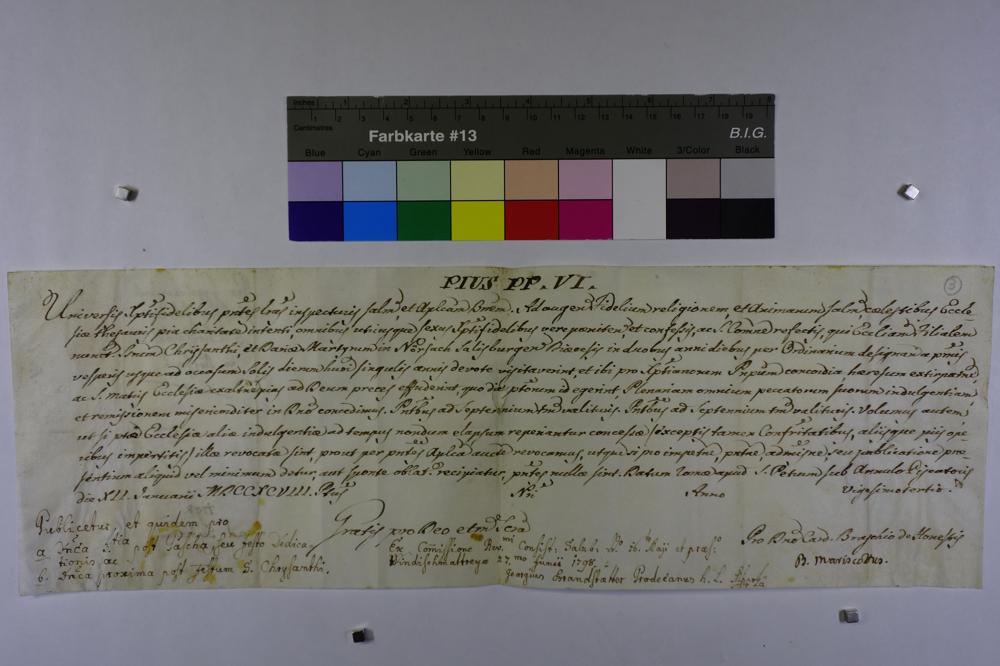 Inches 1 2 3 4 5 6 7 8
Centimetres 1 2 3 4 5 6 7 8 9 10 11 12 13 14 15 16 17 18 19
Farbkarte #13 B.I.G.
Blue Cyan Green Yellow Red Magenta White 3/Color Black
PIUS PP. VI.
3
Universis Xptifidelibus pntes Lras inspecturis salm et Aplcam Bnem. Ad augen Fidelium religionem, et Animarum salm coelestibus Eccle-
siæ Thesauris pia charitate intenti, omnibus utriusque sexus Xptifidelibus vere poeniten et confessis, ac S. Comne refectis, qui Ecc̃liam Filialem
nuncup. Srum Chrysanthi, et Dariæ Martyrum in Salisburgen Dioecesis in duobus anni diebus per Ordinarium designan a primis
vesperis usque ad occasum Solis dierum huoi singulis annis devote visitaverint, et ibi pro Xptianorum Prpum concordia hæresum extirpatne,
ac S. Matris Ecclesiæ exaltne pias ad Deum preces effuderint, quo die ptorum id egerint Plenariam omnium peccatorum suorum indulgentiam
et remissionem misericorditer in Dno concedimus. Pntbus ad Septennium tm valituris. Volumus autem
ut si ptæ Ecclesiæ aliæ indulgentiæ ad tempus nondum elapsum reperiantur concessæ (exceptis tamen Confrtatibus, aliisque piis ope-
ribus impertitis) illæ revocatæ sint, prout per pntes Aplica aucte revocamus, utque si pro impetne, pntne, admisne, seu publicatione præ-
sentium aliquid vel minimum detur, aut sponte oblat. recipiatur, pntes nullæ sint. Datum Romæ apud S. Petrum sub Annulo Piscatoris
die XII. Januarii MDCCXCVIII. Ptus Nri Anno Vigesimotertio.
Publicetur, et quidem pro
Gratis pro Deo et
a Dnca post Pascha, seu festo Dedica-
tionis ac
b. Dnca proxima post festum S. Chrysanthi.
Ex Comissione Rev. mi Consist. Salzb. 16. Maji et præs.
Windischmattreyo 27. mo Junii 1798.
Georgius Brandstatter Prodecanus
Pro Dno Card. Braschio de Honestis
B. Mariscottus.